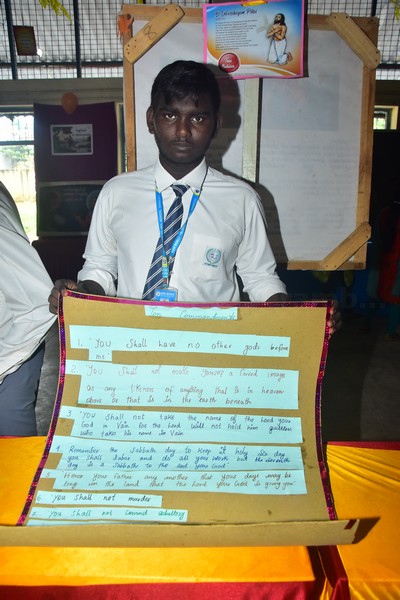 Ten Commandments
1. "YOU Shall have no other gods before
me"
2 "YOU Shall not make yourself a Carved image
as any likeness of anything that is in heaven
above or that is in the earth beneath
3 "YOU shall not take the name of the Lord your
God in Vain for the Lord Will not hold him guiltless
who takes his name in Vain
4. Remember the Sabbath day to keep it holy Six days
you Shall labor and do all your Work but the seventh
day is a Sabbath to the Lord your God"
Honor your Father any mother that your days may be
long in the land that the Lord your God is giving you"
6. YOU Shall not murder
YOU Shall not Commit adultery